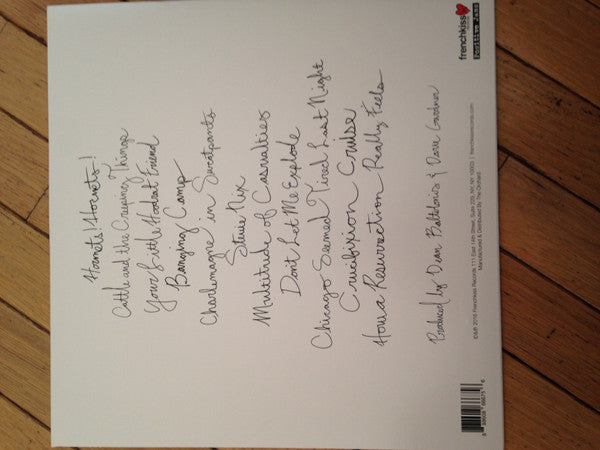 Hornets! Hornets!
Cattle and the Creeping Things
Your Little Hoodrat Friend
Banging Camp
Charlemagne in Sweatpants
Stevie Nix
Multitude of Casualties
Don't Let Me Explode
Chicago Seemed Tired Last Night
Crucifixion Cruise
How a Resurrection Really Feels
Produced by Dean Baltulonis & Dave Gardner
©&℗ 2016 Frenchkiss Records 111 East 14th Street, Suite 229, NY, NY 10003 | frenchkissrecords.com
Manufactured & Distributed By The Orchard
frenchkiss